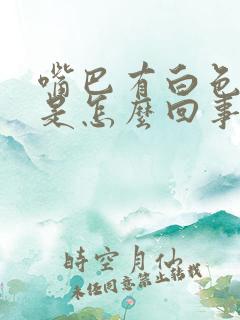 嘴巴有白色
是怎麼回事
時空月仙
未经同意禁止转载